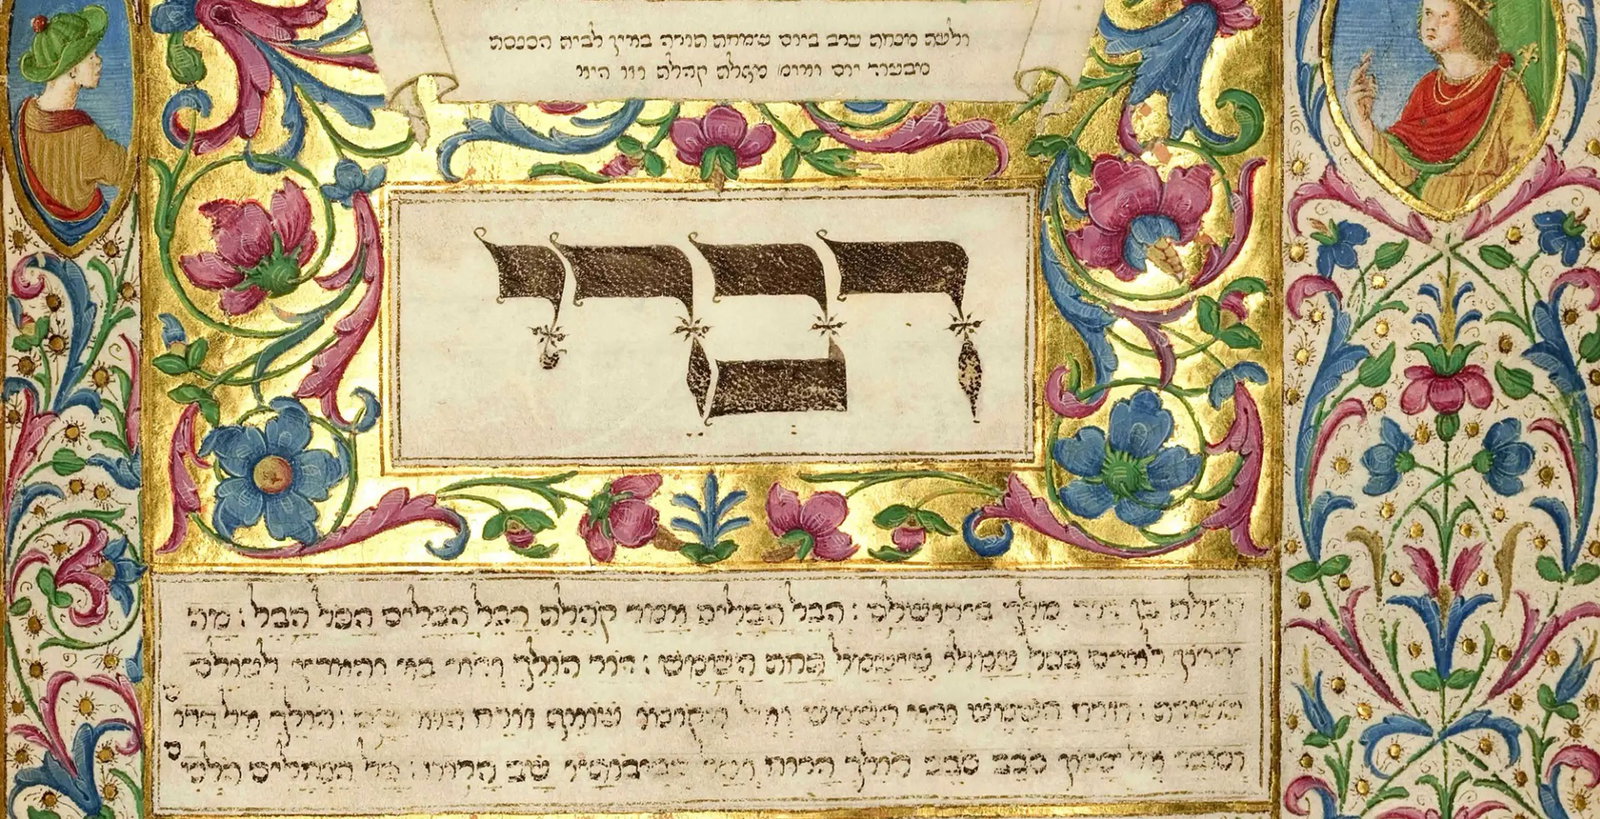 ולעת מנחת ערב ביום שמחת תורה באין לבית הכנסת
מבעוד יום מגלת קהלת וזו היא
דברי
קהלת בן דוד מלך בירושלם : הבל הבלים אמר קהלת הבל הבלים הכל הבל : מה
יתרון לאדם בכל עמלו שיעמול תחת השמש : דור הולך ודור בא והארץ לעולם
עומדת : וזרח השמש ובא השמש ואל מקומו שואף זורח הוא שם : הולך אל דרום
וסובב אל צפון סבב סבב הולך הרוח ועל סביבותיו שב הרוח : כל הנחלים הלכים